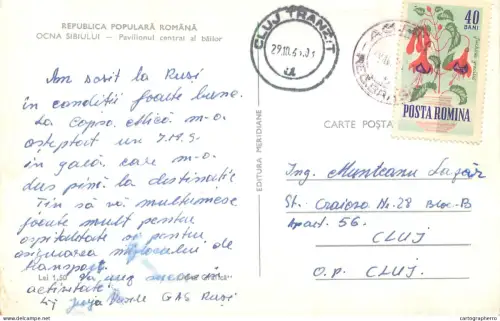 REPUBLICA POPULARĂ ROMÂNĂ
OCNA SIBIULUI — Pavilionul central al băilor
Am sosit la Ruși
în condiții foarte bune.
La Copșa Mică m-a
așteptat un
în gară, care m-a
dus pînă la destinație
Țin să vă mulțumesc
foarte mult pentru
ospitalitate și pentru
asigurarea mijlocului de
transport.
Lei 1,50
succes în
activitate!
Vasile GAS Ruși
EDITURA MERIDIANE
CLUJ TRANZIT
40
BANI
POSTA ROMINA
CARTE POȘTA
Ing. Munteanu Lazăr
St. Craiova Nr. 28 Bloc-B
Apart. 56.
CLUJ
O.p. CLUJ.
www.delcampe.net
cartographero